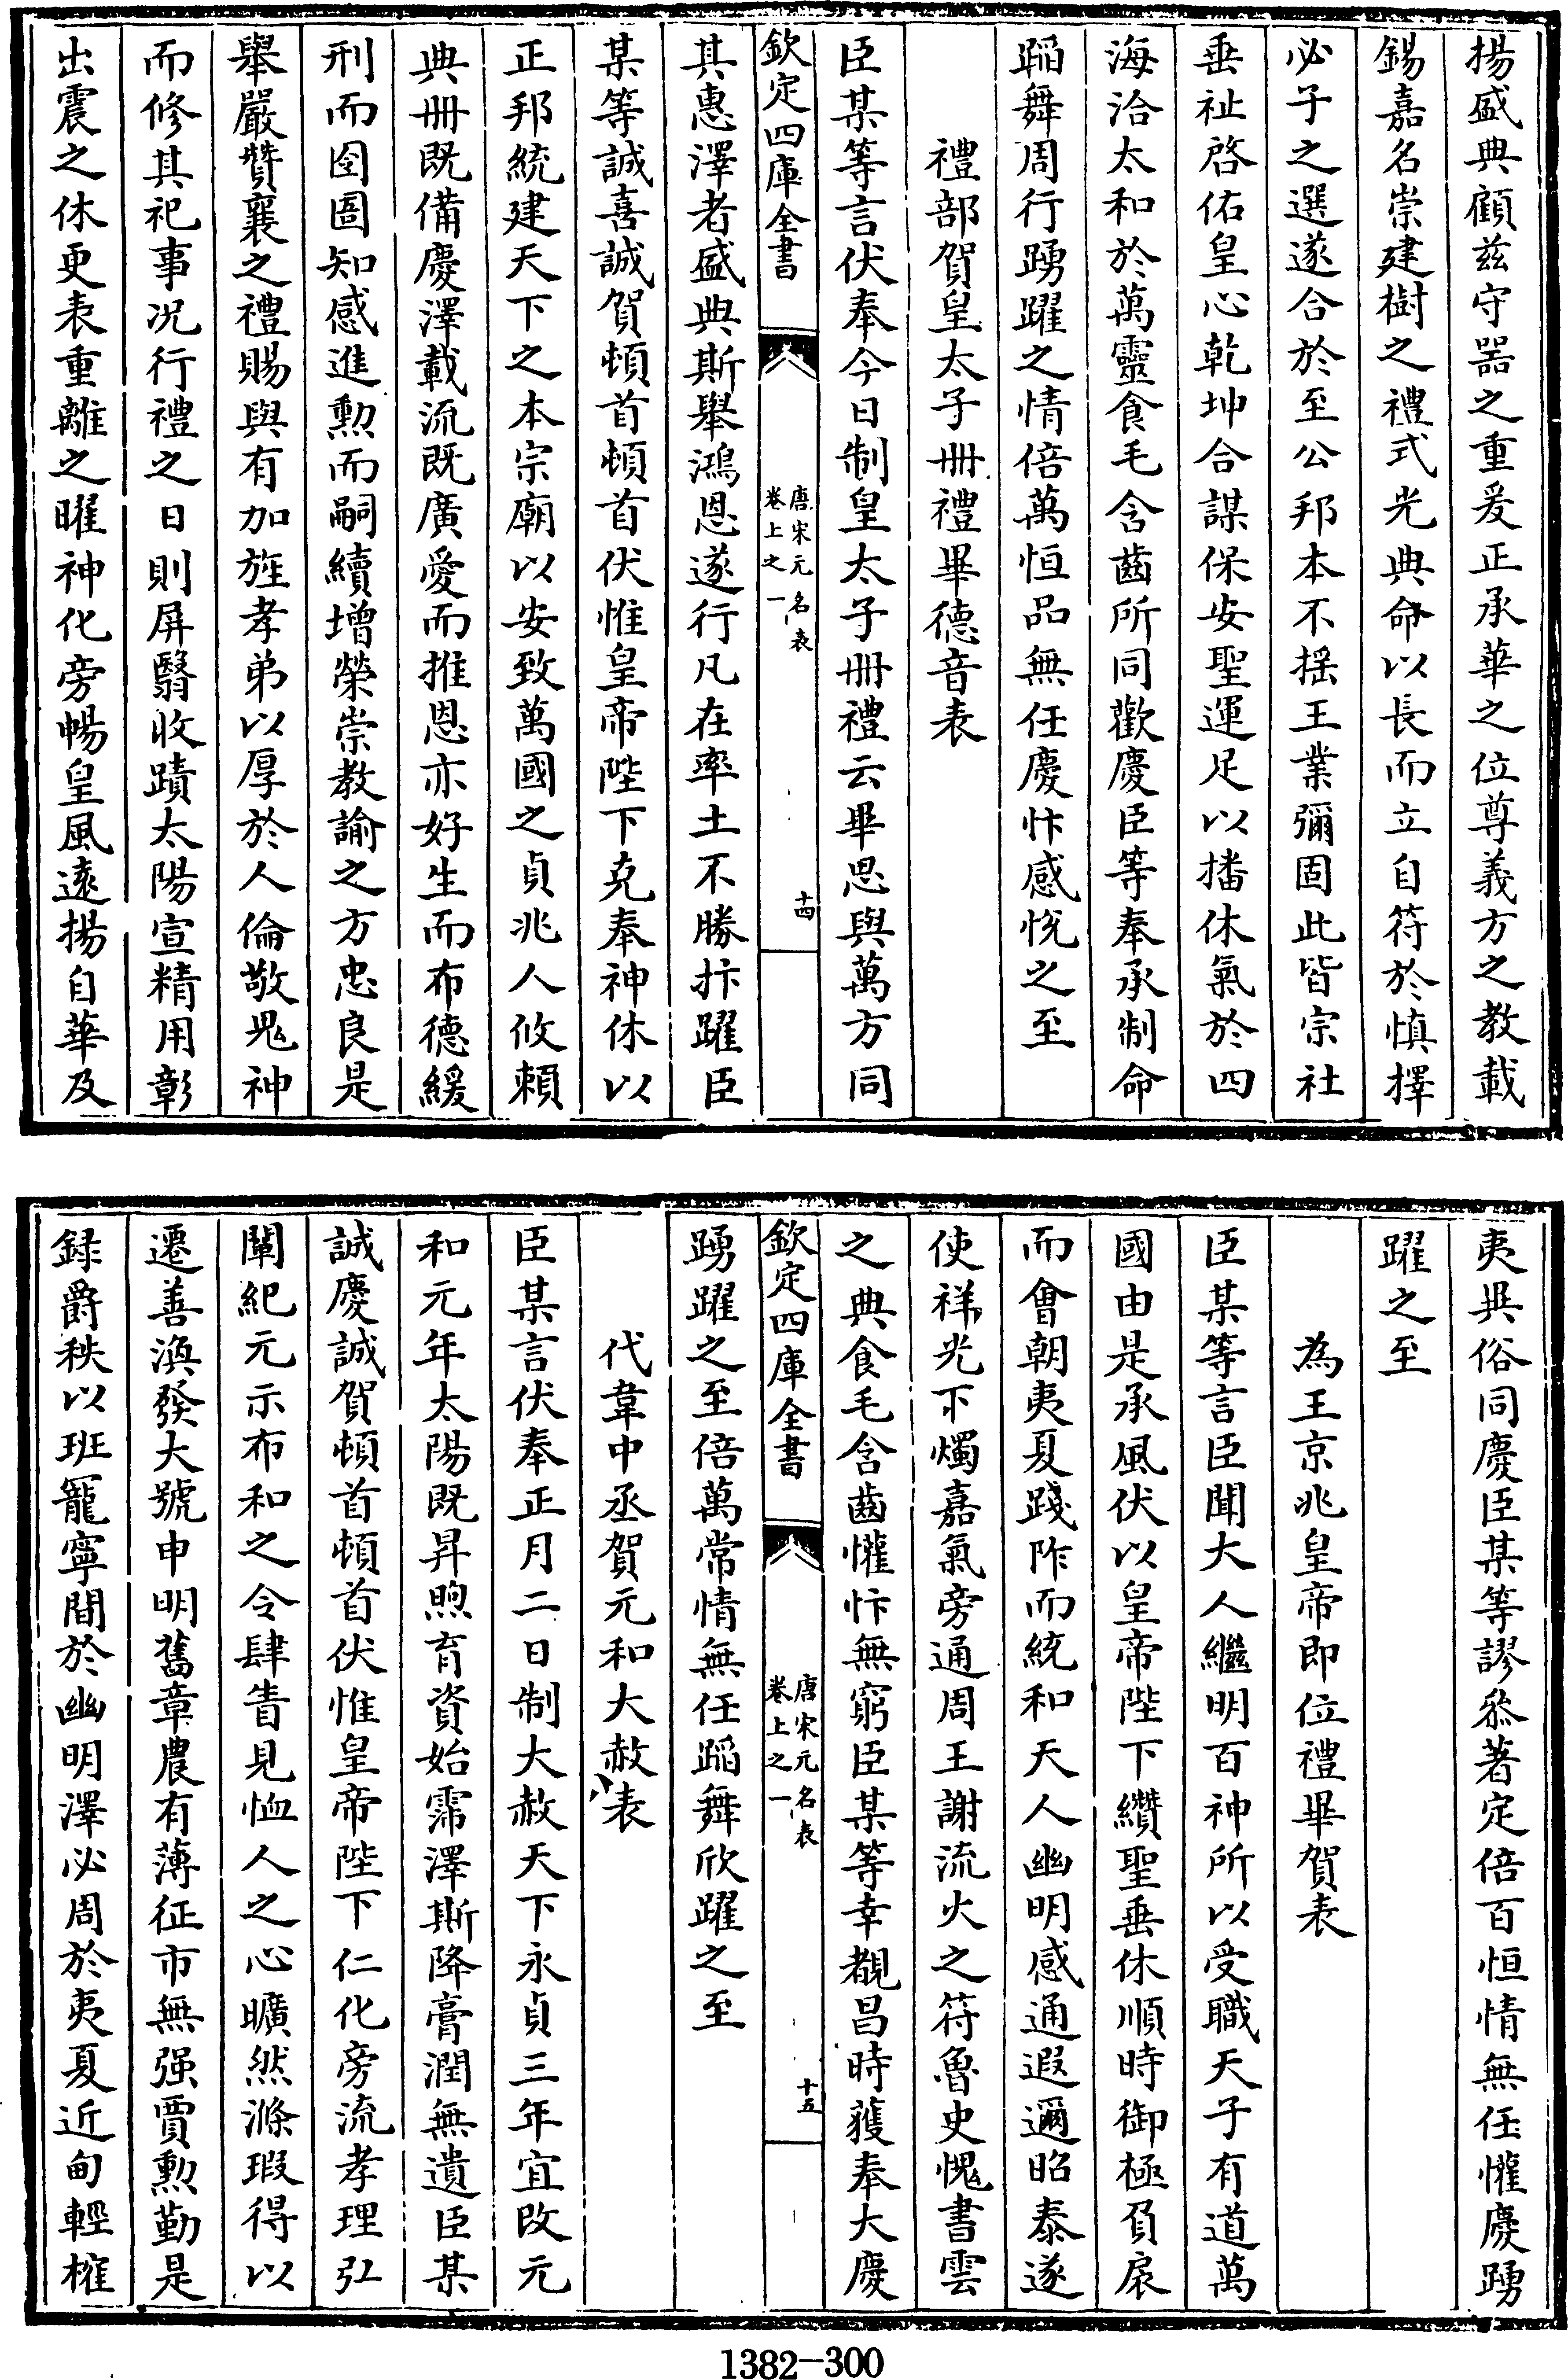 揚盛典顧兹守器之重爰正承華之位尊義方之教載
錫嘉名崇建樹之禮式光典命以長而立自符於慎擇
必子之選遂合於至公邦本不揺王業彌固此皆宗社
垂祉啓佑皇心乾坤合謀保安聖運足以播休氣於四
海洽太和於萬靈食毛含齒所同歡慶臣等奉承制命
蹈舞周行踴躍之情倍萬恒品無任慶忭感悅之至
禮部賀皇太子冊禮畢德音表
臣某等言伏奉今日制皇太子冊禮云畢思與萬方同
欽定四庫全書
唐宋元名表
卷上之一
十四
其惠澤者盛典斯舉鴻恩遂行凡在率土不勝抃躍臣
某等誠喜誠賀頓首頓首伏惟皇帝陛下克奉神休以
正邦統建天下之本宗廟以安致萬國之貞兆人攸賴
典冊既備慶澤載流既廣愛而推恩亦好生而布德緩
刑而囹圄知感進勲而嗣續增榮崇教諭之方忠良是
舉嚴贊襄之禮賜與有加旌孝弟以厚於人倫敬鬼神
而修其祀事况行禮之日則屏翳收蹟太陽宣精用彰
出震之休更表重離之曜神化旁暢皇風遠揚自華及
夷異俗同慶臣某等謬忝著定倍百恒情無任懽慶踴
躍之至
為王京兆皇帝即位禮畢賀表
臣某等言臣聞大人繼明百神所以受職天子有道萬
國由是承風伏以皇帝陛下纘聖垂休順時御極負扆
而會朝夷夏踐阼而統和天人幽明感通遐邇昭泰遂
使祥光下燭嘉氣旁通周王謝流火之符魯史愧書雲
之典食毛含齒懽忭無窮臣某等幸覩昌時獲奉大慶
欽定四庫全書
唐宋元名表
卷上之一
十五
踴躍之至倍萬常情無任蹈舞欣躍之至
代韋中丞賀元和大赦表
臣某言伏奉正月二日制大赦天下永貞三年宜改元
和元年太陽既昇煦育資始霈澤斯降膏潤無遺臣某
誠慶誠賀頓首頓首伏惟皇帝陛下仁化旁流孝理弘
闡紀元示布和之令肆眚見恤人之心曠然滌瑕得以
遷善渙發大號申明舊章農有薄征市無强賈勲勤是
録爵秩以班寵寧間於幽明澤必周於夷夏近甸輕榷
1382-300